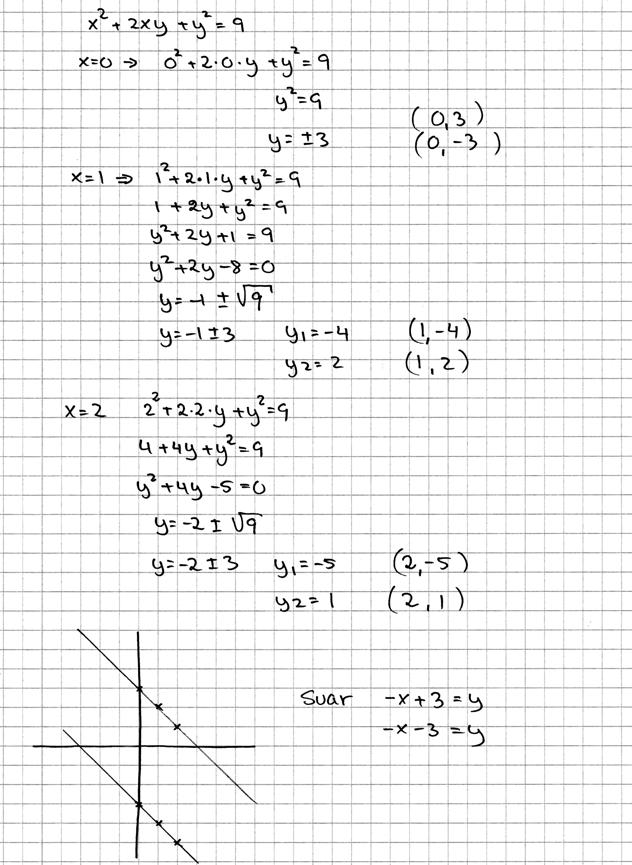 x² + 2xy + y² = 9
x=0 ⇒ 0² + 2·0·y + y² = 9
y² = 9
y = ±3 (0,3)
(0,-3)
x=1 ⇒ 1² + 2·1·y + y² = 9
1 + 2y + y² = 9
y² + 2y + 1 = 9
y² + 2y - 8 = 0
y = -1 ± √9
y = -1 ± 3 y₁ = -4 (1,-4)
y2 = 2 (1,2)
x=2 2² + 2·2·y + y² = 9
4 + 4y + y² = 9
y² + 4y - 5 = 0
y = -2 ± √9
y = -2 ± 3 y₁ = -5 (2,-5)
y2 = 1 (2,1)
Svar -x + 3 = y
-x - 3 = y